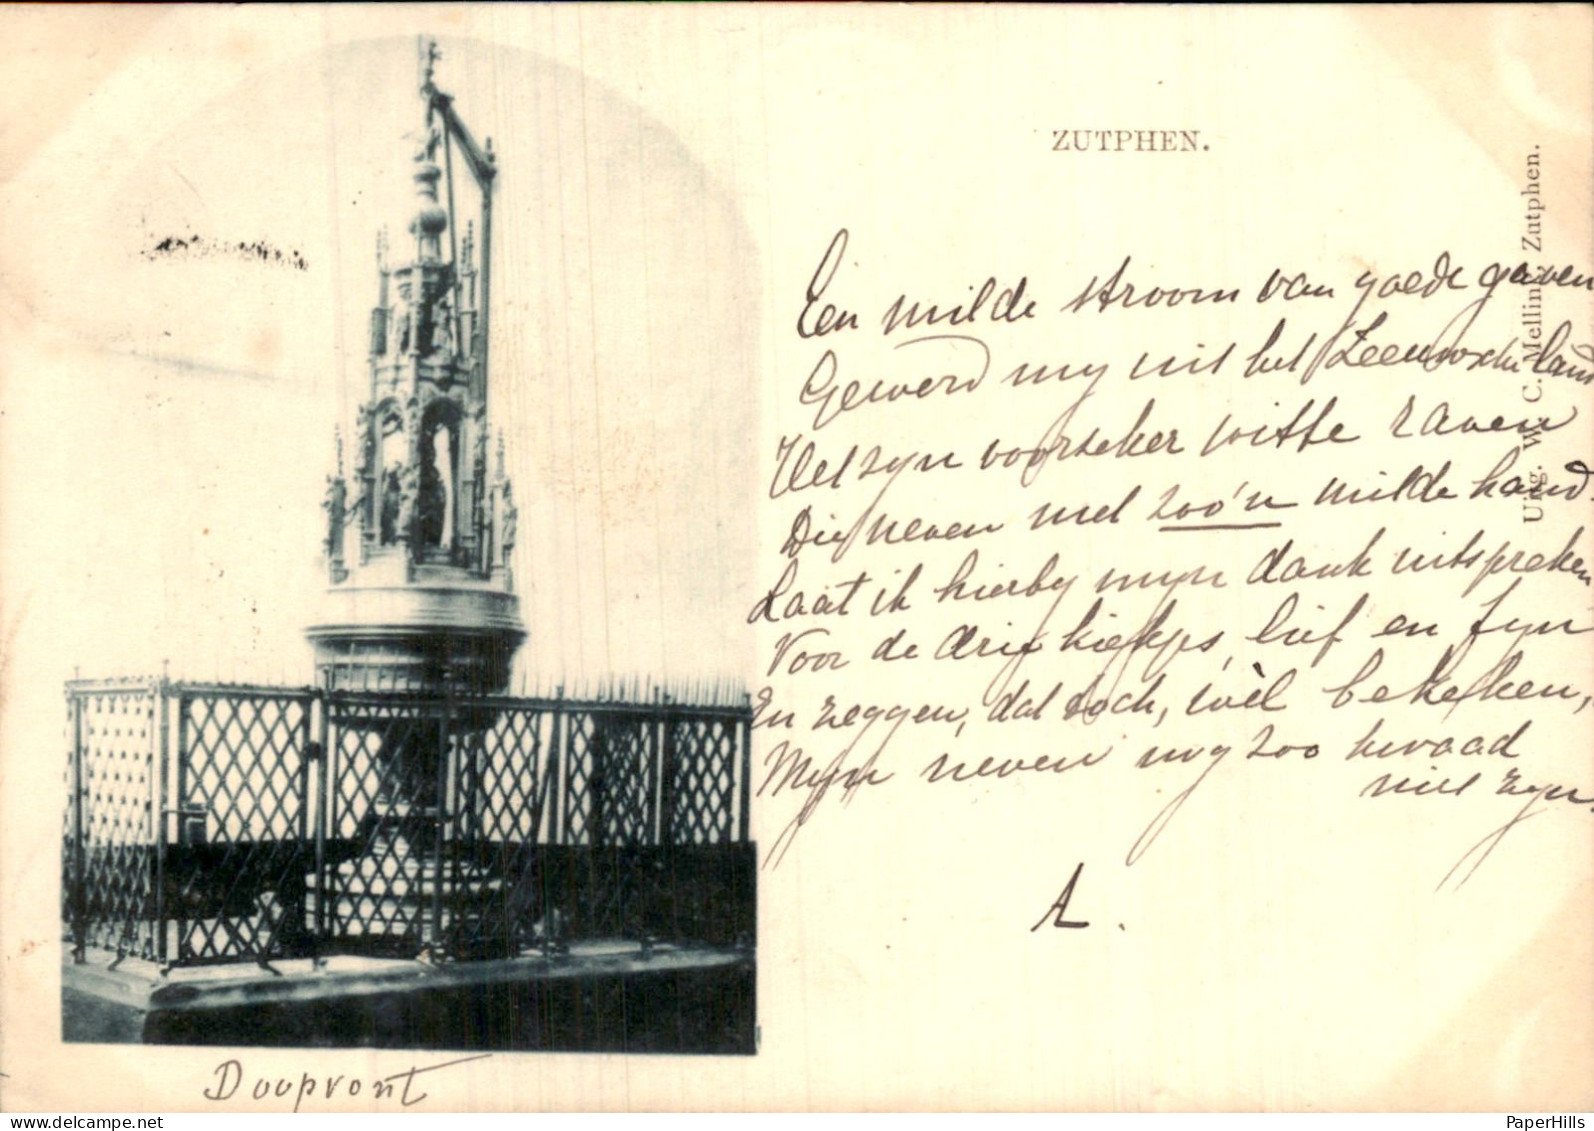 ZUTPHEN.
Een milde stroom van goede gaven
Gewerd my uit het Zeeuwsche land
Het zyn voorzeker witte raven
Die neven met zoo'n milde hand.
Laat ik hierby myn dank uitspreken
Voor de drie kiekjes, lief en fyn
En zeggen, dat toch, wèl bekeken,
Myn neven nog zoo kwaad
niet zyn.
A.
Uitg. W. C. Mellink, Zutphen.
Doopvont
PaperHills